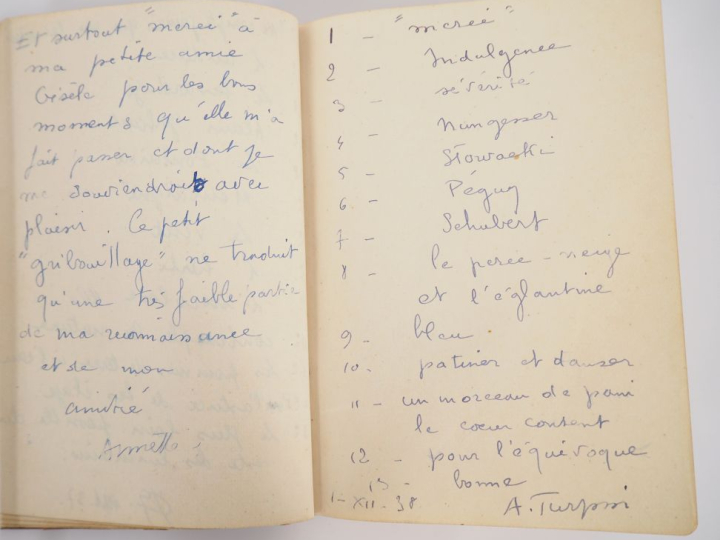 Et surtout "merci" à
ma petite amie
Gisèle pour les bons
moments qu'elle m'a
fait passer et dont je
me souviendrais avec
plaisir. Ce petit
"gribouillage" ne traduit
qu'une très faible partie
de ma reconnaissance
et de mon
amitié
1 - "merci"
2 - Indulgence
3 - sévérité
4 - Nungesser
5 - Słowacki
6 - Péguy
7 - Schubert
8 - le perce-neige
et l'églantine
9 - bleu
10. patiner et danser
11 - un morceau de pain
le cœur content
12 - pour l'équivoque
13 - bonne
1-XII-38 A. Turpin